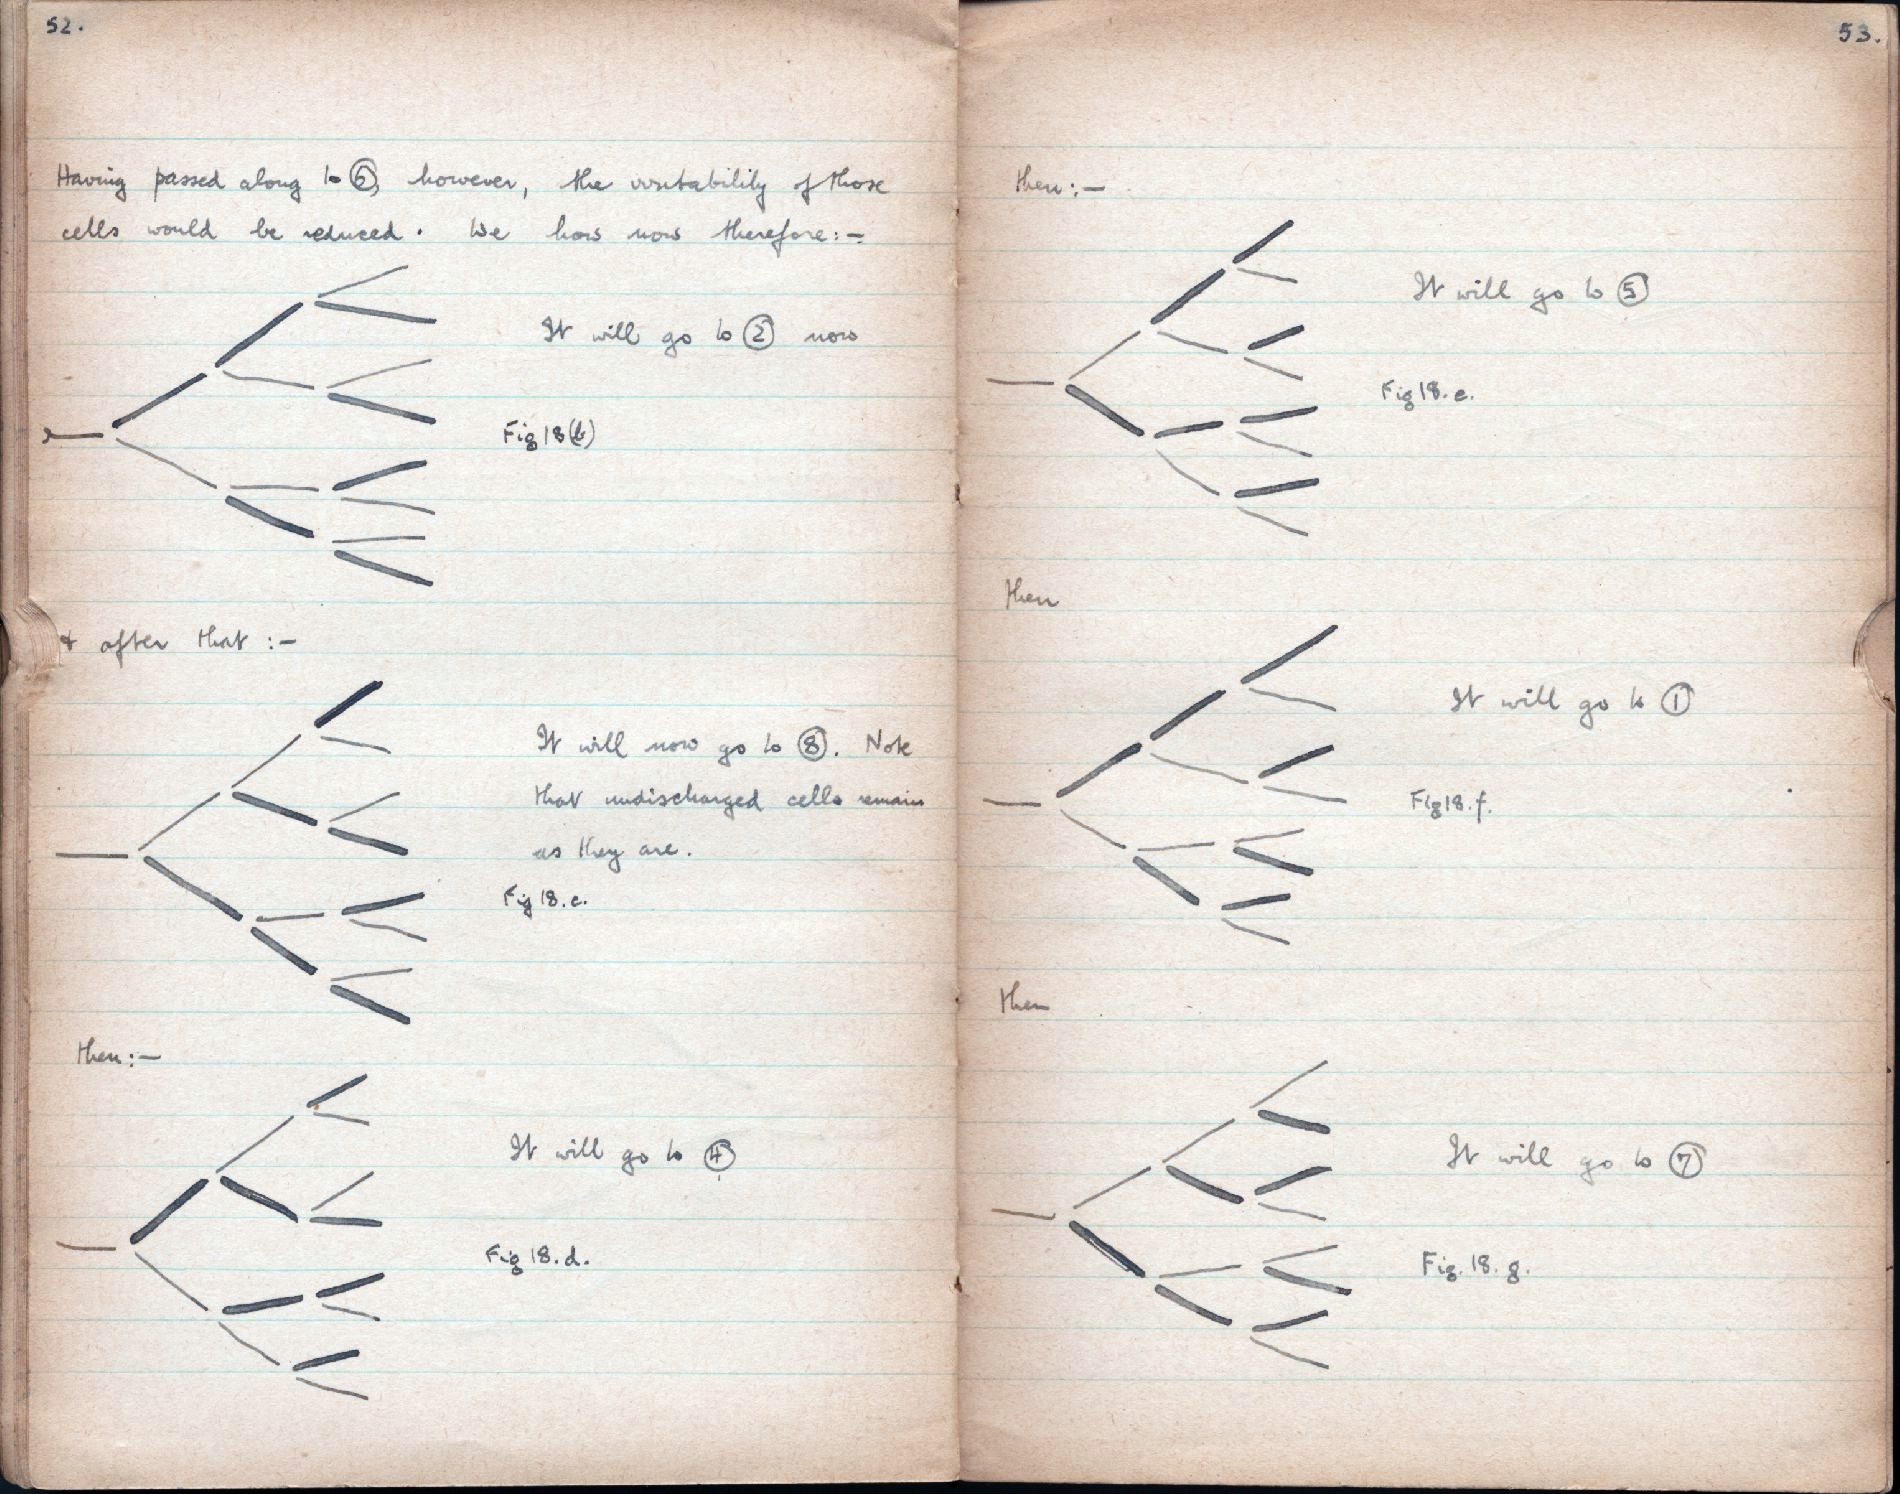 52.
Having passed along to ⑥, however, the irritability of those
cells would be reduced. We have now therefore:-
It will go to ② now
Fig 18(b)
& after that :-
It will now go to ⑧. Note
that undischarged cells remain
as they are.
Fig 18.c.
then:-
It will go to ④
Fig 18.d.
53.
then:-
It will go to ⑤
Fig 18.e.
then
It will go to ①
Fig 18.f.
then
It will go to ⑦
Fig. 18. g.